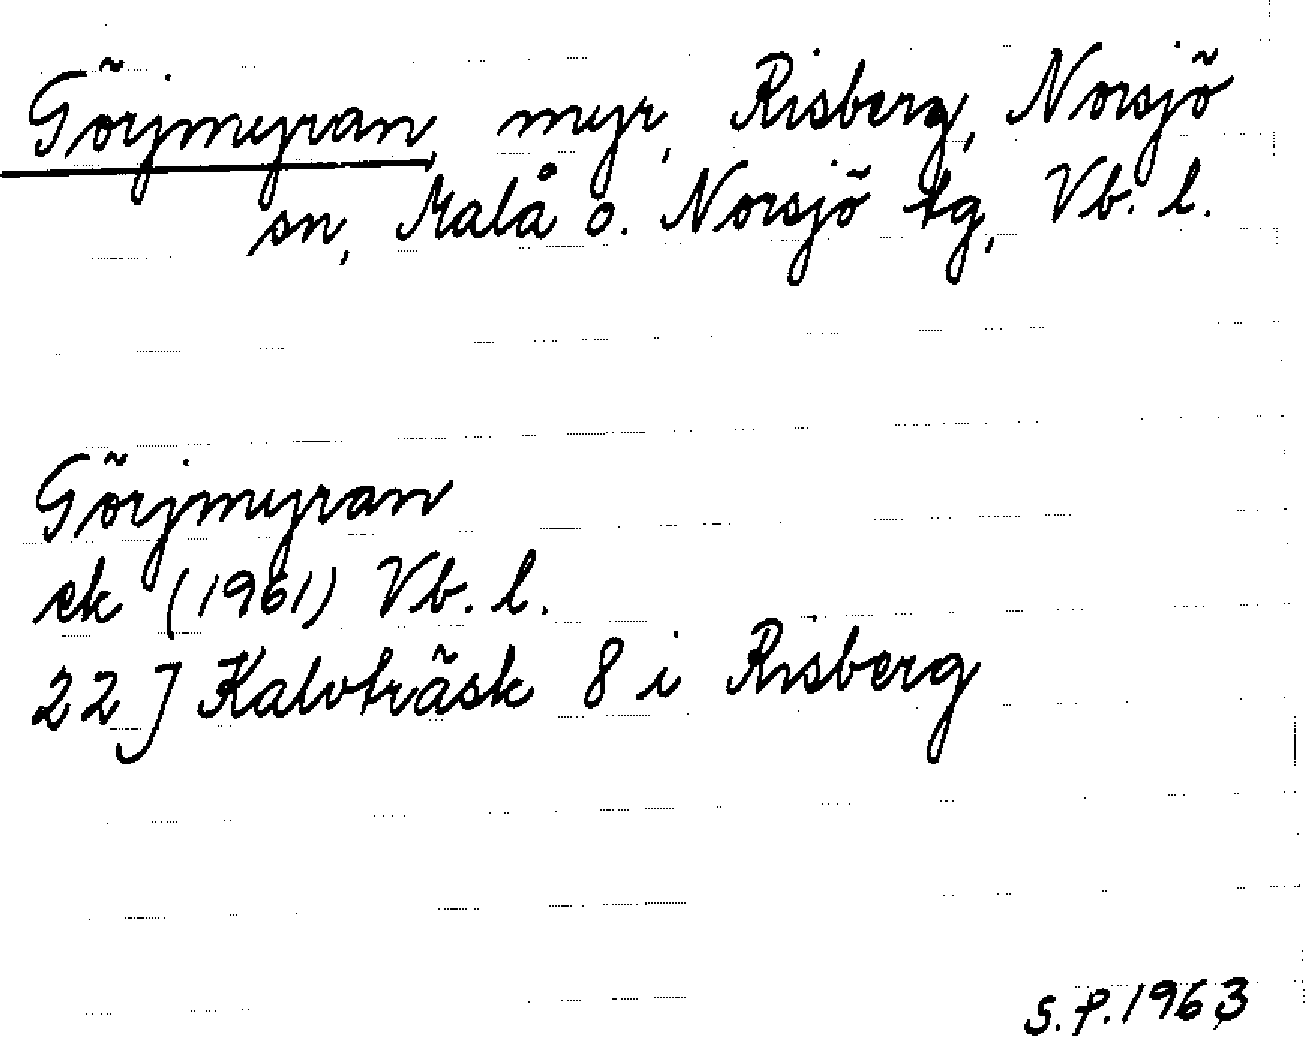 Görjmyran, myr, Risberg, Norsjö
sn, Malå o. Norsjö tg, Vb. l.
Görjmyran
ek (1961) Vb. l.
22 J Kalvträsk 8 i Risberg
S.P.1963